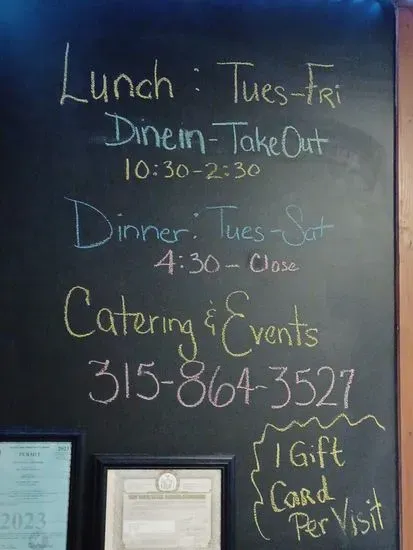 Lunch : Tues-Fri
Dinein-TakeOut
10:30-2:30
Dinner: Tues-Sat
4:30- Close
Catering & Events
315-864-3527
1 Gift
Card
Per Visit
2023
PERMIT
2023